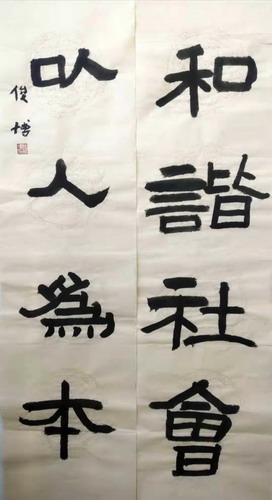 和諧社會
以人為本
俊博